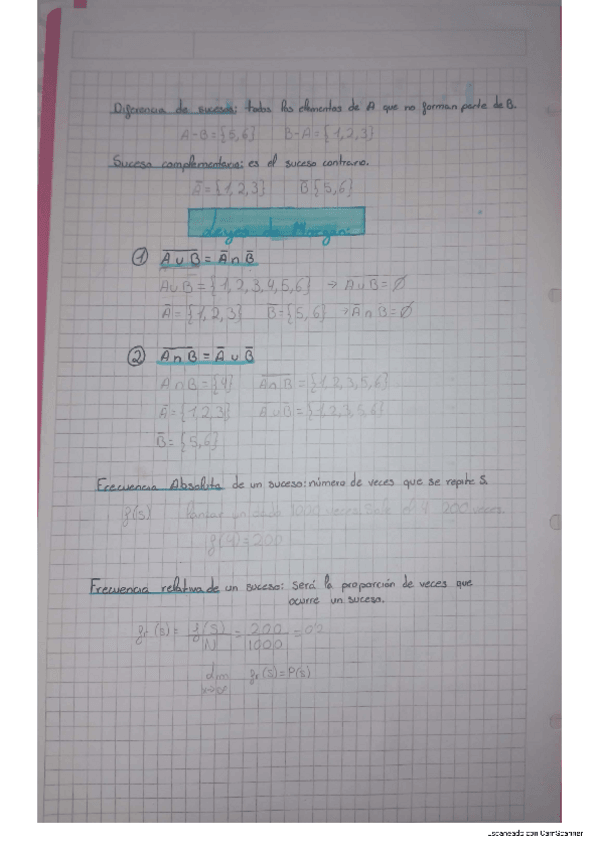 Diferencia de sucesos: todos los elementos de A que no forman parte de B.
A-B={5,6} B-A={1,2,3}
Suceso complementario: es el suceso contrario.
Ā={1,2,3} B̄{5,6}
Leyes de Morgan:
① A̅ ̅∪̅ ̅B̅ = Ā∩B̄
A∪B={1,2,3,4,5,6} → A̅∪̅B̅=∅
Ā={1,2,3} B̄={5,6} → Ā∩B̄=∅
② A̅ ̅∩̅ ̅B̅ = Ā∪B̄
A∩B={4} A̅∩̅B̅={1,2,3,5,6}
Ā={1,2,3} Ā∪B̄={1,2,3,5,6}
B̄={5,6}
Frecuencia Absoluta de un suceso: número de veces que se repite S.
f(s) un dado 1000 veces 4 200 veces
f(4)=200
Frecuencia relativa de un suceso: será la proporción de veces que
ocurre un suceso.
fr(s)= f(s)/N = 200/1000 =0'2
lim fr(s)=P(s)
Escaneado con CamScanner